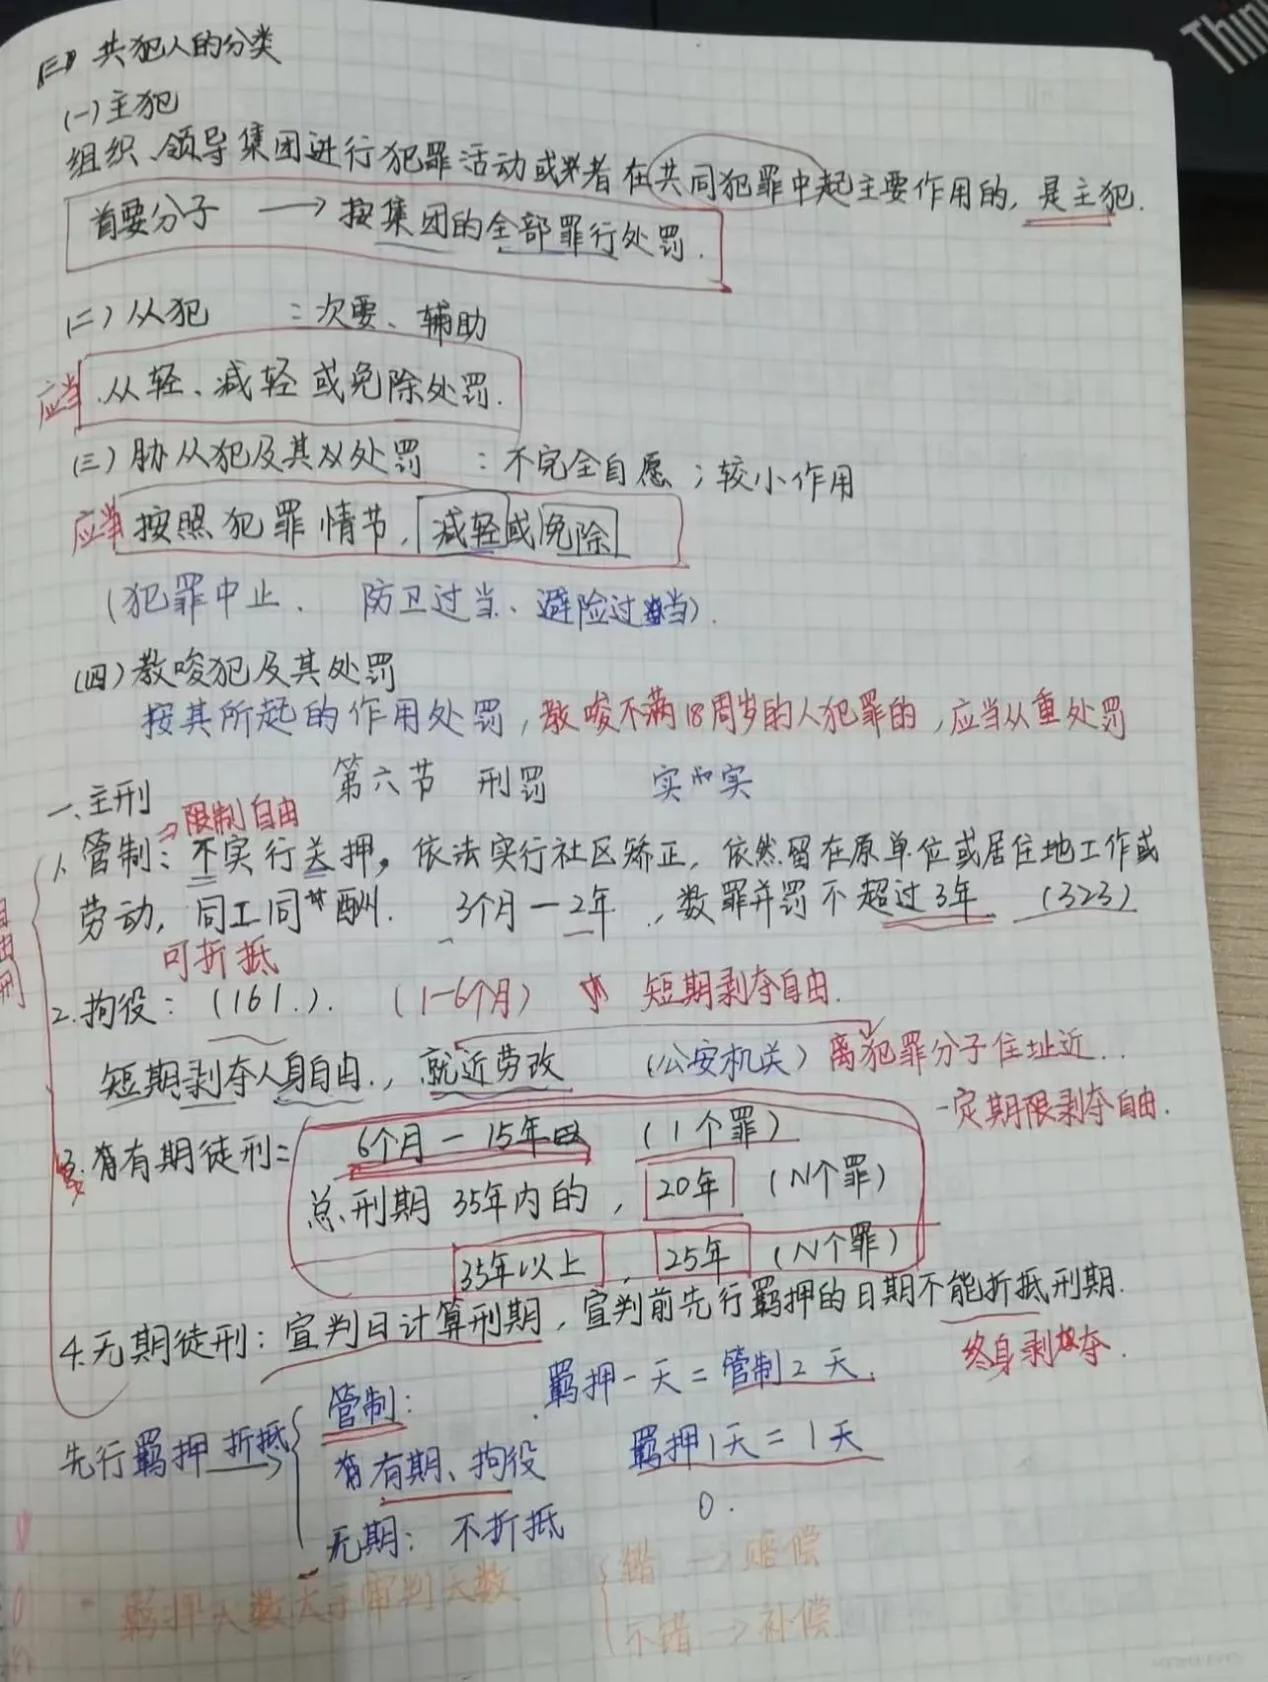 Thin
(三) 共犯人的分类
(一)主犯
组织、领导集团进行犯罪活动或者在共同犯罪中起主要作用的,是主犯.
首要分子 → 按集团的全部罪行处罚.
(二)从犯 :次要、辅助
应当 从轻、减轻或免除处罚.
(三)胁从犯及其处罚 :不完全自愿;较小作用
应当 按照犯罪情节,减轻或免除
(犯罪中止、 防卫过当、避险过当).
(四)教唆犯及其处罚
按其所起的作用处罚,教唆不满18周岁的人犯罪的,应当从重处罚
第六节 刑罚
一、主刑
⇒限制自由
1、管制:不实行关押,依法实行社区矫正,依然留在原单位或居住地工作或
劳动,同工同酬. 3个月—2年,数罪并罚不超过3年 (323)
自由刑
可折抵
2.拘役:(161.). (1-6个月) 短期剥夺自由.
短期剥夺人身自由.,就近劳改 (公安机关)离犯罪分子住址近..
一定期限剥夺自由.
3.有期徒刑= 6个月—15年 (1个罪)
总刑期35年内的,20年 (N个罪)
35年以上,25年 (N个罪)
4.无期徒刑:宣判日计算刑期,宣判前先行羁押的日期不能折抵刑期.
终身剥夺.
先行羁押 折抵→
管制: 羁押一天=管制2天.
有期、拘役 羁押1天=1天
无期:不折抵 0.
羁押天数大于审判天数
错→赔偿
不错→补偿